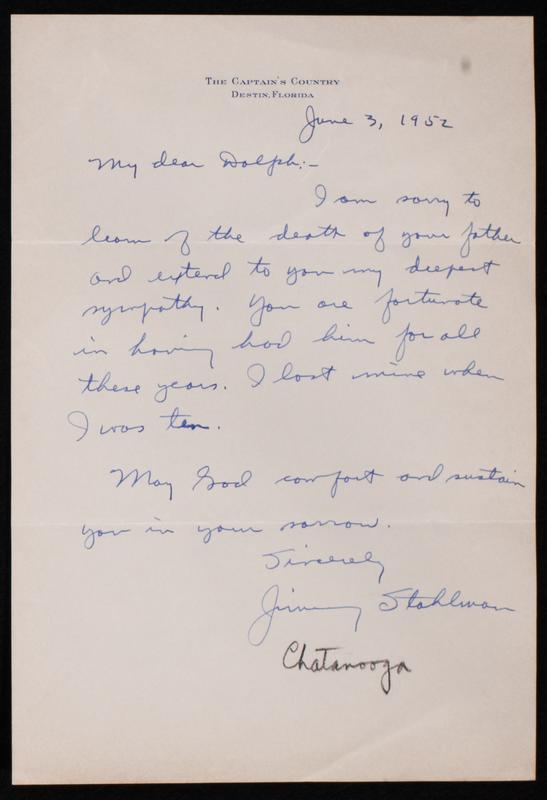 The Captain's Country
Destin, Florida
June 3, 1952
My dear Dolph:-
I am sorry to
learn of the death of your father
and extend to you my deepest
sympathy. You are fortunate
in having had him for all
these years. I lost mine when
I was ten.
May God comfort and sustain
you in your sorrow.
Sincerely
Jimmy Stahlman
Chatanooga